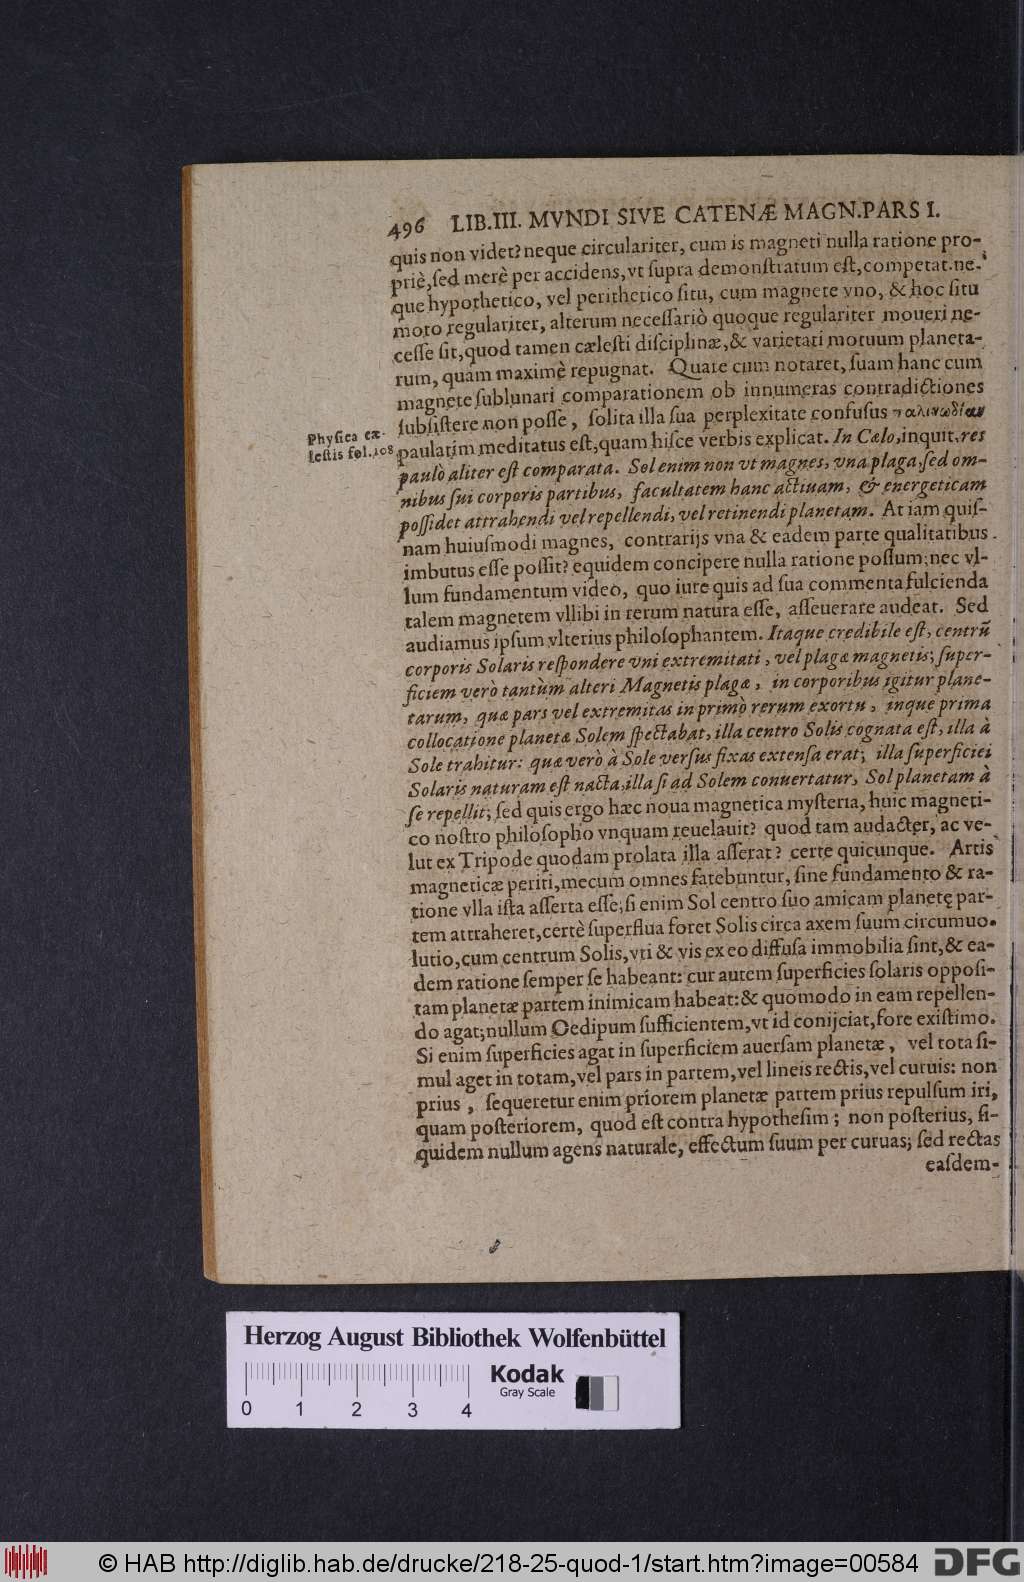 496 LIB.III. MVNDI SIVE CATENÆ MAGN.PARS I.
quis non videt? neque circulariter, cum is magneti nulla ratione pro-
priè, ſed merè per accidens, vt ſupra demonſtratum eſt, competat. ne-
que hypothetico, vel perithetico ſitu, cum magnete vno, & hoc ſitu
moto regulariter, alterum neceſſariò quoque regulariter moueri ne-
ceſſe ſit, quod tamen cæleſti diſciplinæ, & varietati motuum planeta-
rum, quam maximè repugnat. Quare cum notaret, ſuam hanc cum
magnete ſublunari comparationem ob innumeras contradictiones
ſubſiſtere non poſſe, ſolita illa ſua perplexitate confuſus παλινωδίαν
Phyſica cæ-
leſtis fol. 108.
paulatim meditatus eſt, quam hiſce verbis explicat. In Cælo, inquit, res
paulò aliter eſt comparata. Sol enim non vt magnes, vna plaga, ſed om-
nibus ſui corporis partibus, facultatem hanc actiuam, & energeticam
poſſidet attrahendi vel repellendi, vel retinendi planetam. At iam quiſ-
nam huiuſmodi magnes, contrarijs vna & eadem parte qualitatibus
imbutus eſſe poſſit? equidem concipere nulla ratione poſſum; nec vl-
lum fundamentum video, quo iure quis ad ſua commenta fulcienda
talem magnetem vllibi in rerum natura eſſe, aſſeuerare audeat. Sed
audiamus ipſum vlterius philoſophantem. Itaque credibile eſt, centrũ
corporis Solaris reſpondere vni extremitati, vel plagæ magnetis; ſuper-
ficiem verò tantùm alteri Magnetis plagæ, in corporibus igitur plane-
tarum, quæ pars vel extremitas in primò rerum exortu, inque prima
collocatione planetæ Solem ſpectabat, illa centro Solis cognata eſt, illa à
Sole trahitur: quæ verò à Sole verſus fixas extenſa erat; illa ſuperficiei
Solaris naturam eſt nacta, illa ſi ad Solem conuertatur, Sol planetam à
ſe repellit; ſed quis ergo hæc noua magnetica myſteria, huic magneti-
co noſtro philoſopho vnquam reuelauit? quod tam audacter, ac ve-
lut ex Tripode quodam prolata illa aſſerat? certe quicunque. Artis
magneticæ periti, mecum omnes fatebuntur, ſine fundamento & ra-
tione vlla iſta aſſerta eſſe; ſi enim Sol centro ſuo amicam planetę par-
tem attraheret, certè ſuperflua foret Solis circa axem ſuum circumuo-
lutio, cum centrum Solis, vti & vis ex eo diffuſa immobilia ſint, & ea-
dem ratione ſemper ſe habeant: cur autem ſuperficies ſolaris oppoſi-
tam planetæ partem inimicam habeat: & quomodo in eam repellen-
do agat; nullum Oedipum ſufficientem, vt id conijciat, fore exiſtimo.
Si enim ſuperficies agat in ſuperficiem auerſam planetæ, vel tota ſi-
mul aget in totam, vel pars in partem, vel lineis rectis, vel curuis: non
prius, ſequeretur enim priorem planetæ partem prius repulſum iri,
quam poſteriorem, quod eſt contra hypotheſim; non poſterius, ſi-
quidem nullum agens naturale, effectum ſuum per curuas; ſed rectas
eaſdem-
Herzog August Bibliothek Wolfenbüttel
Kodak
Gray Scale
0 1 2 3 4
© HAB http://diglib.hab.de/drucke/218-25-quod-1/start.htm?image=00584
DFG